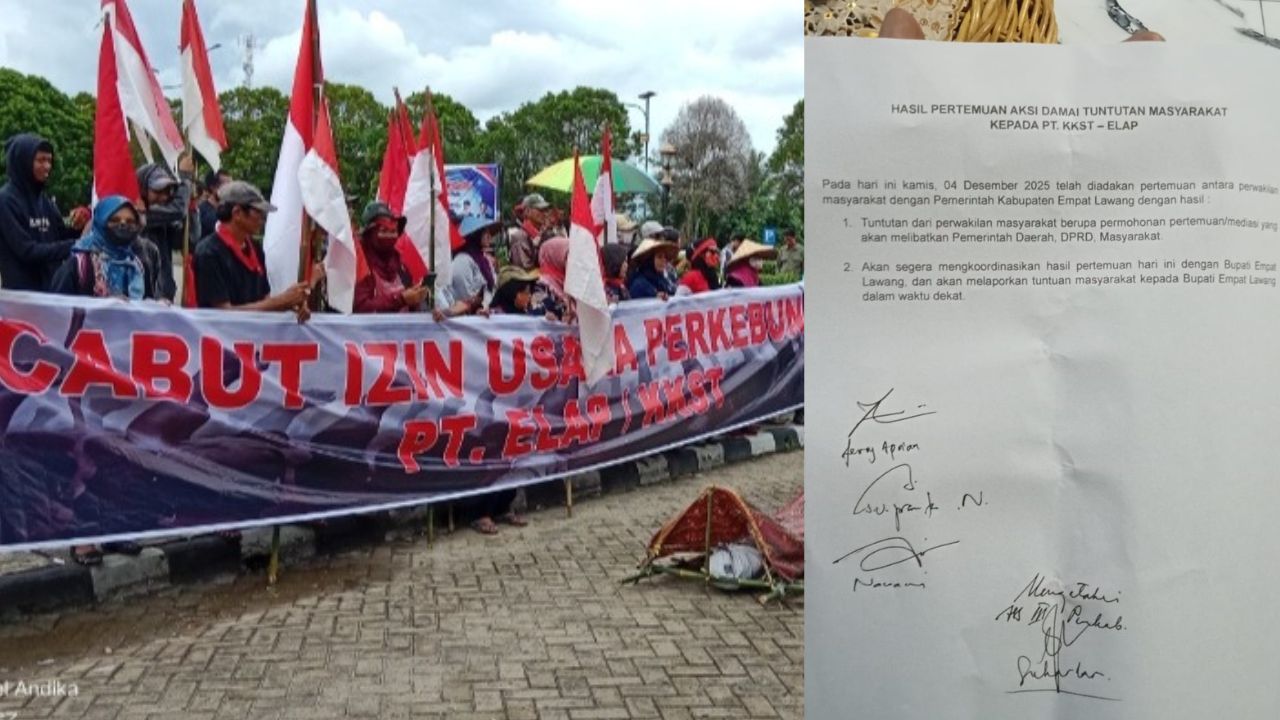 CABUT IZIN USAHA PERKEBUN
PT. ELAP / KKST
el Andika
HASIL PERTEMUAN AKSI DAMAI TUNTUTAN MASYARAKAT
KEPADA PT. KKST – ELAP
Pada hari ini kamis, 04 Desember 2025 telah diadakan pertemuan antara perwakilan
masyarakat dengan Pemerintah Kabupaten Empat Lawang dengan hasil :
1. Tuntutan dari perwakilan masyarakat berupa permohonan pertemuan/mediasi yang
akan melibatkan Pemerintah Daerah, DPRD, Masyarakat.
2. Akan segera mengkoordinasikan hasil pertemuan hari ini dengan Bupati Empat
Lawang, dan akan melaporkan tuntuan masyarakat kepada Bupati Empat Lawang
dalam waktu dekat.
Mengetahui
Suharlan